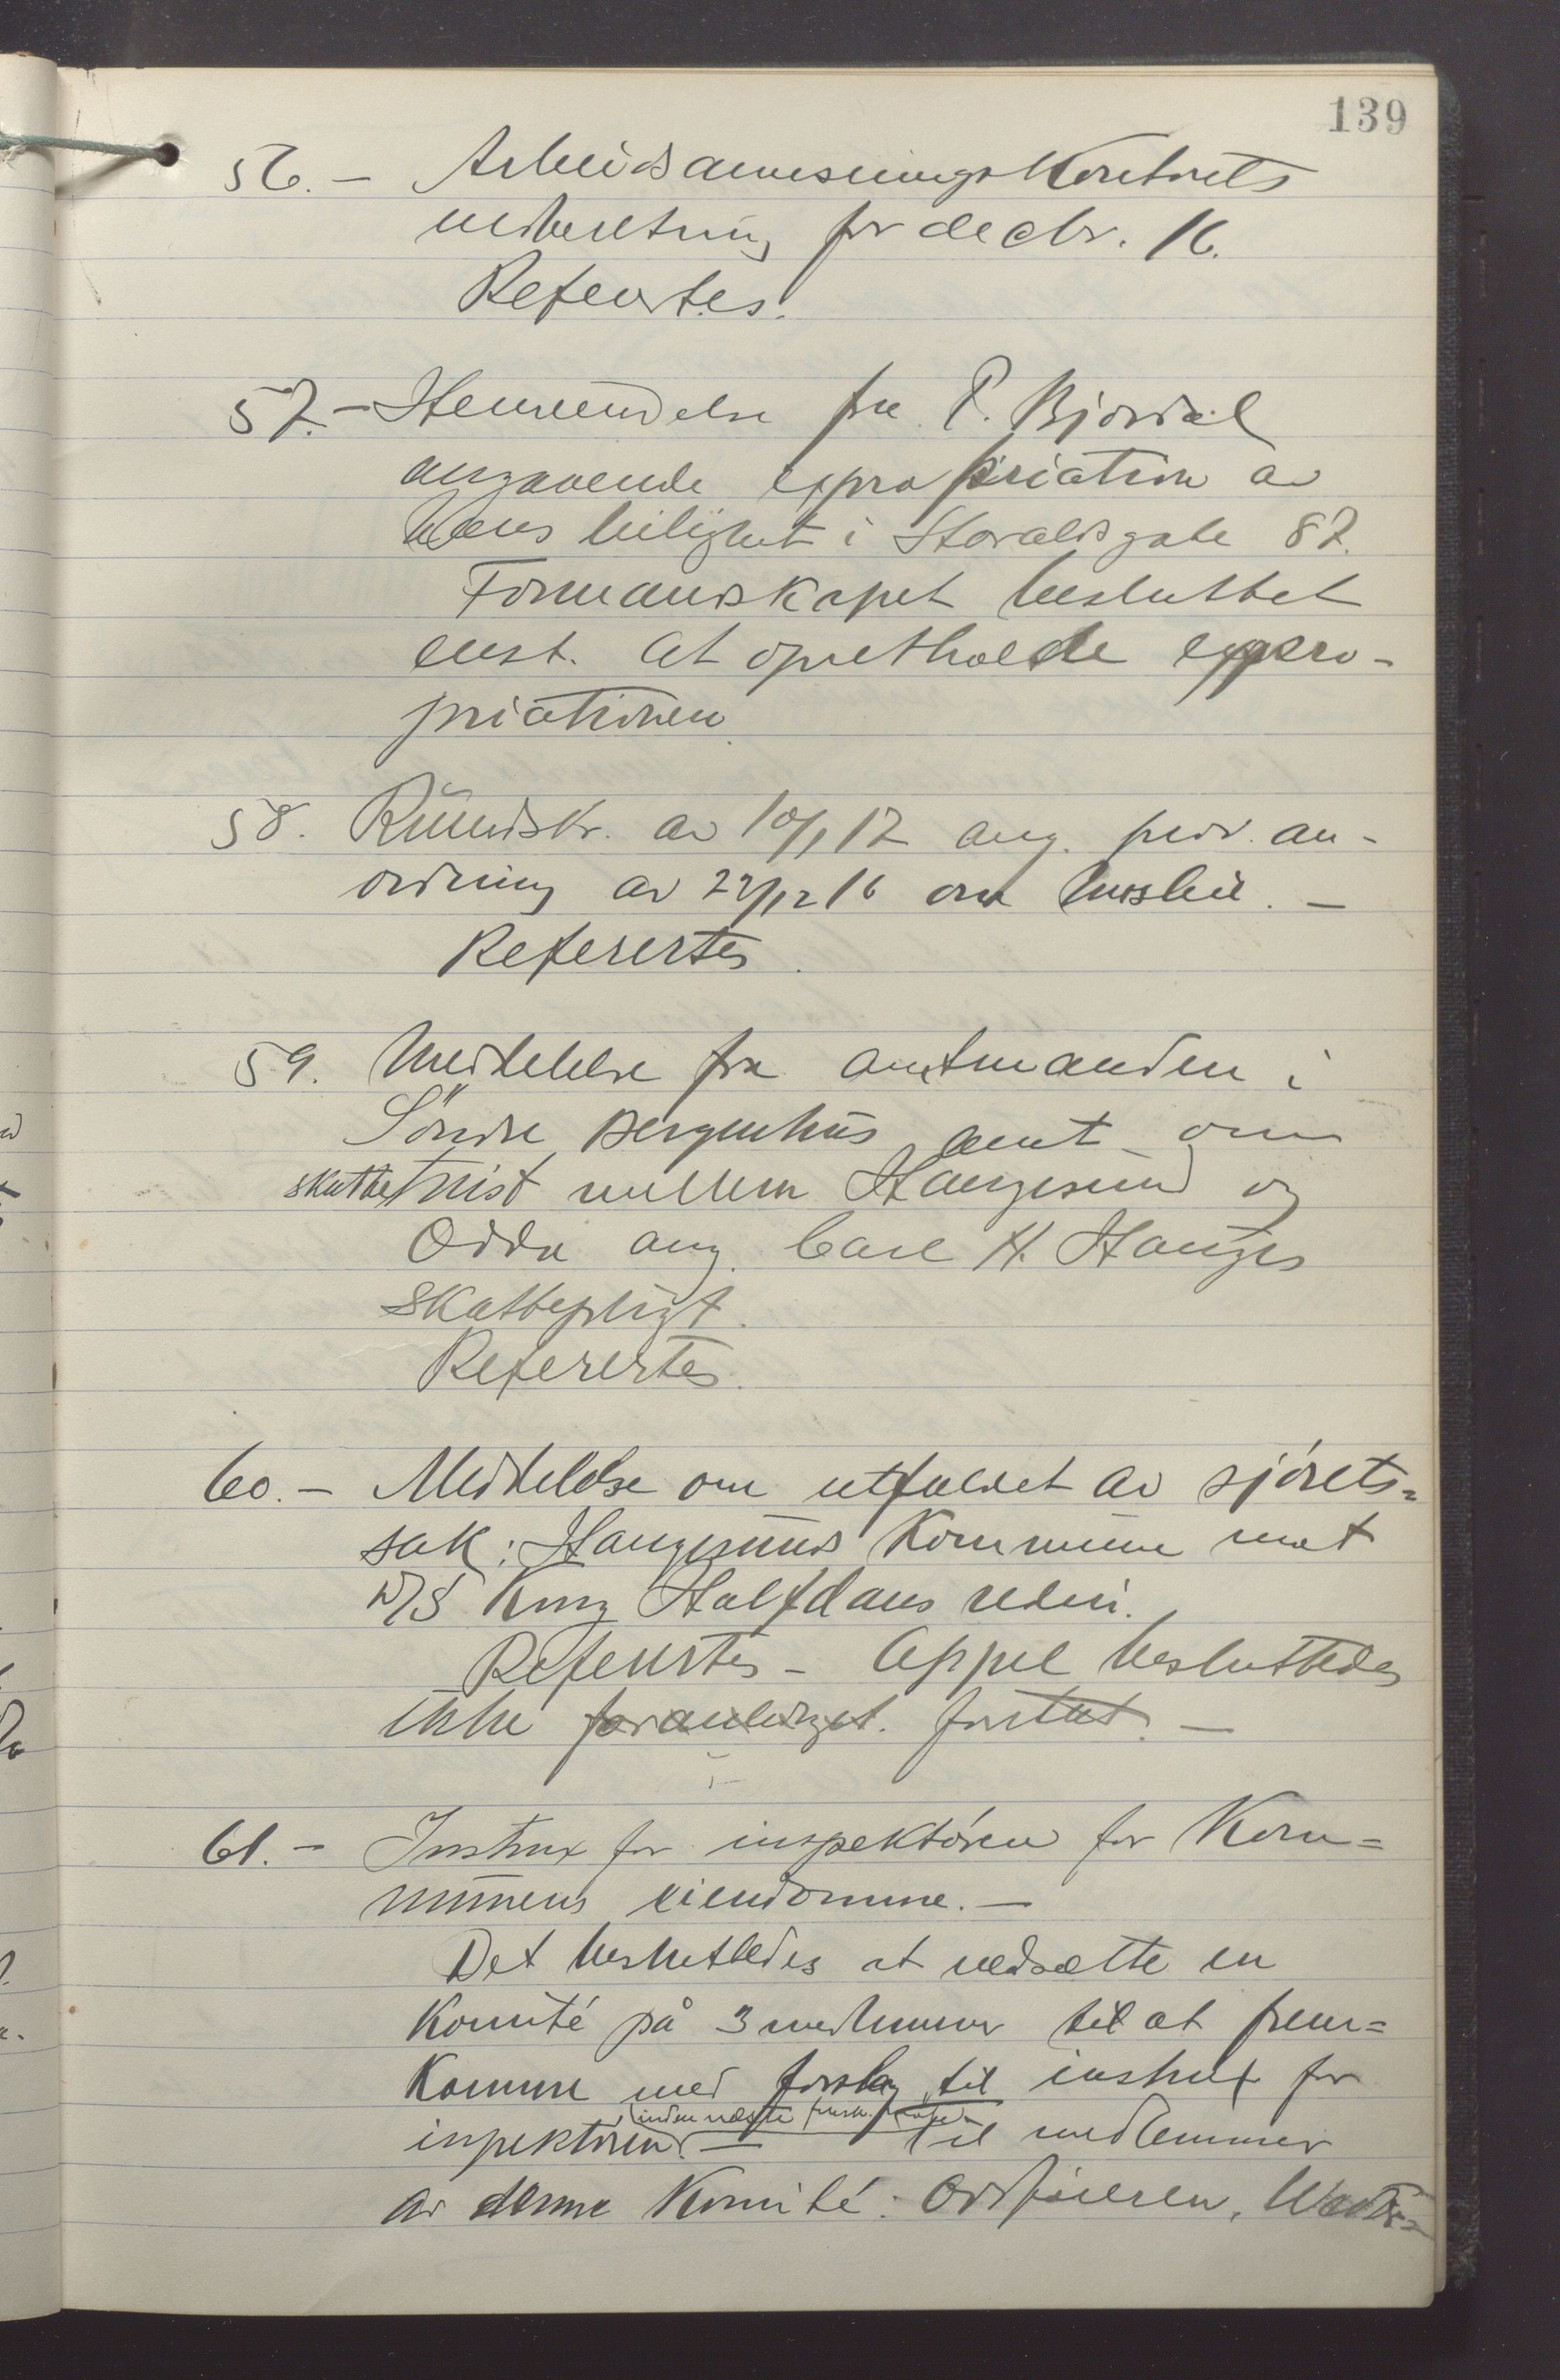 139
56. – Arbeidsanvisningskontorets
indberetning for decbr. 16.
Refertes.
57. – Henvendelse fra P. Bjordal
angaaende expropriation av
hans leilighet i Haraldsgate 87.
Formandskapet besluttet
enst. at opretholde expro-
priationen.
58. Rundskr. av 10/1 17 ang. prov. an-
ordning av 22/12 16 om husleie. –
Referertes.
59. Meddelelse fra amtmanden i
Söndre Bergenhus amt om
skattetvist mellem Haugesund og
Odda ang. Carl H. Hauges
skattepligt.
Referertes.
60. – Meddelelse om utfaldet av sjörets-
sak: Haugesunds Kommune mot
D/S Kong Halfdans rederi.
Refertes – Appel besluttedes
ikke foranlediget. foretat. –
61. – Instrux for inspektören for Kom=
munens eiendomme. –
Det besluttedes at nedsætte en
Komité på 3 medlemmer til at frem=
komme med forslag til instrux for
(inden næste
inspektören. – Til medlemmer
av denne Komité: Ordföreren,